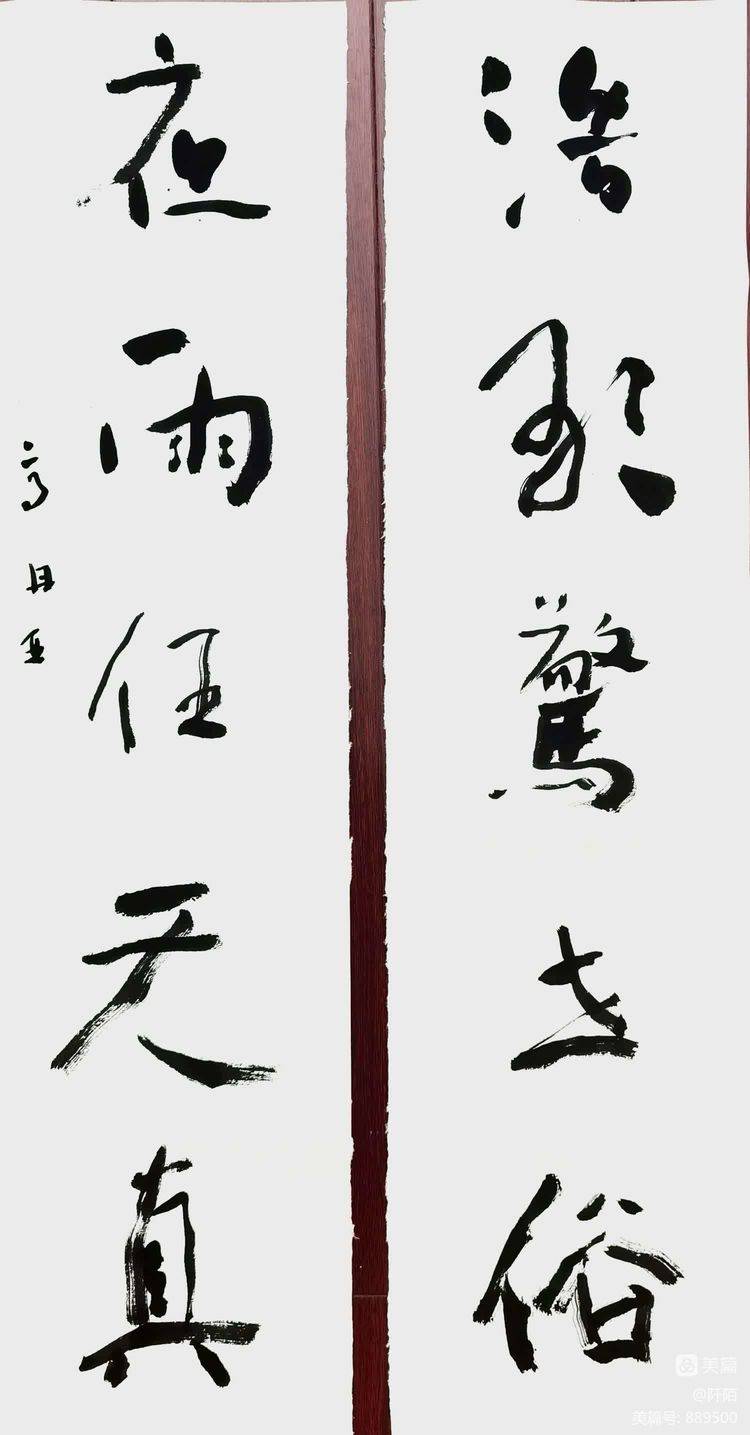 浩歌驚世俗
夜雨任天真
美篇
@阡陌
美篇号: 889500